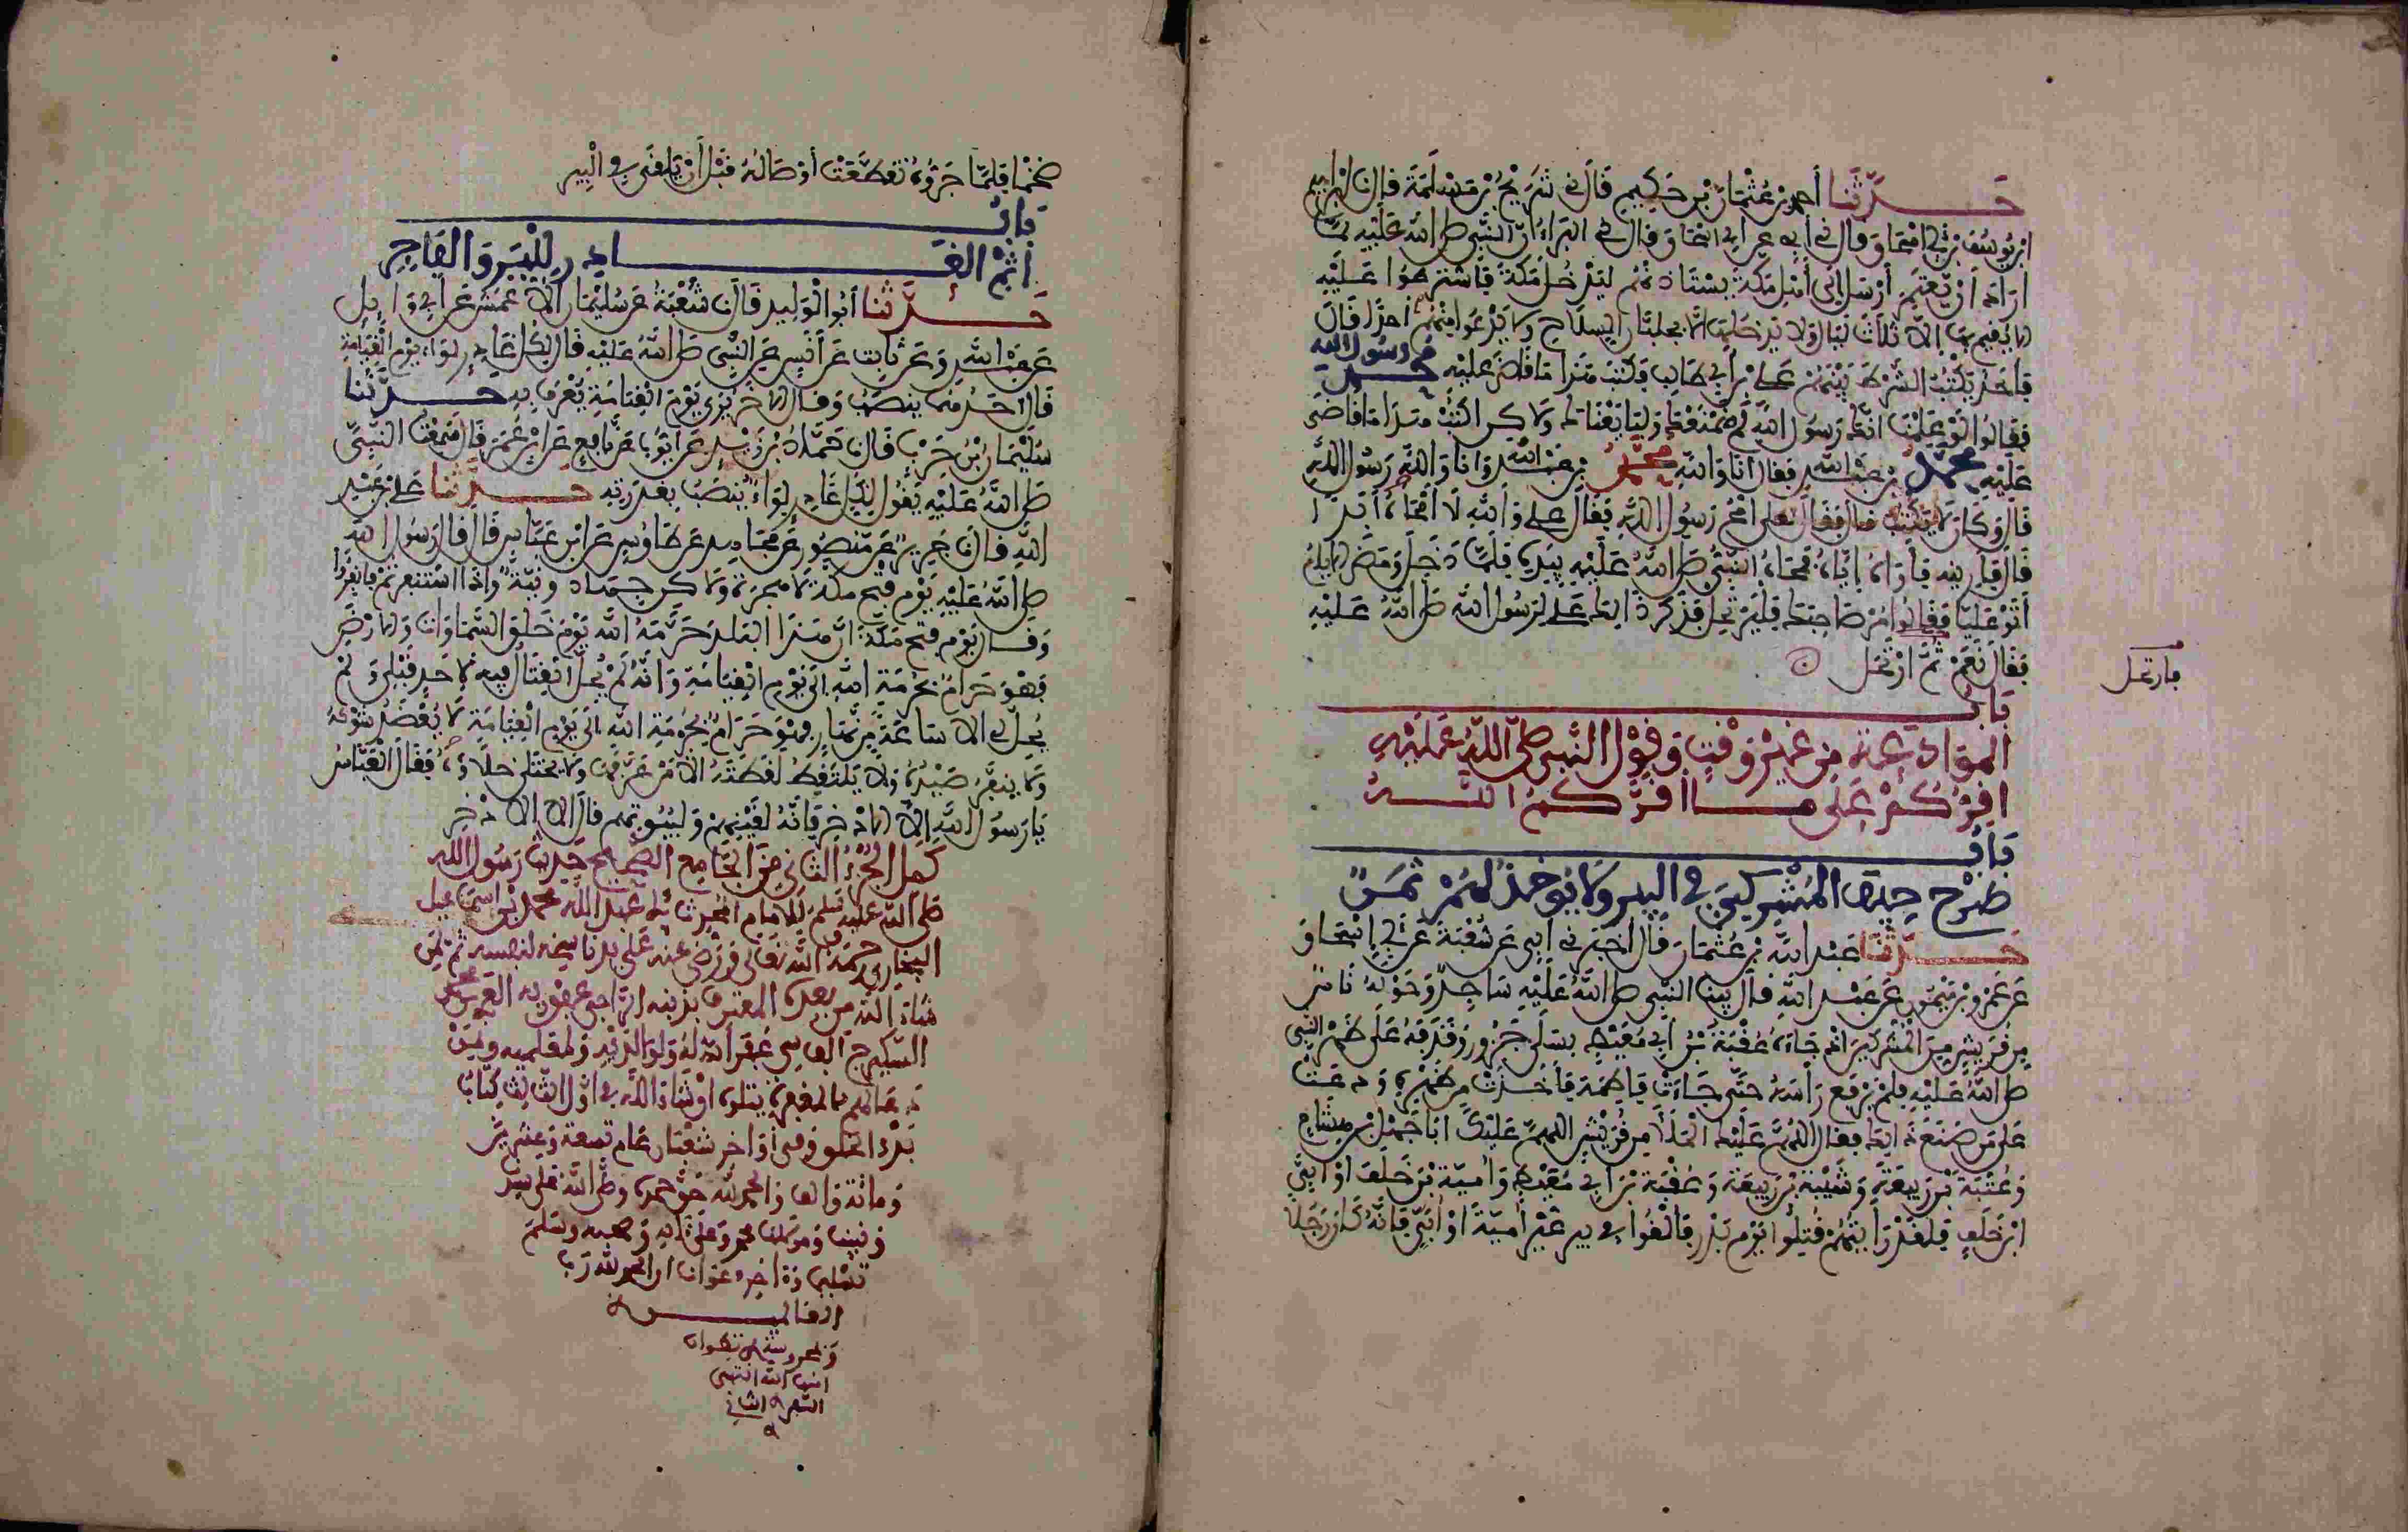 حدثنا أحمد بن عثمان بن حكيم قال نى شريح بن مسلمة قال نا إبراهيم
ابن يوسف بن أبي إسحاق قال نى أبي عن أبي إسحاق قال نى البراء أن النبي صلى الله عليه لما
أراد أن يعتمر أرسل إلى أهل مكة يستأذنهم ليدخل مكة فاشترطوا عليه
ألا يقيم بها إلا ثلاث ليال ولا يدخلها إلا بجلبان السلاح ولا يدعو منهم أحدا قال
فأخذ يكتب الشرط بينهم علي بن أبي طالب فكتب هذا ما قاضى عليه محمد رسول الله
فقالوا لو علمنا أنك رسول الله لم نمنعك ولبايعناك ولاكن اكتب هذا ما قاضى
عليه محمد بن عبد الله فقال أنا والله محمد بن عبد الله وأنا والله رسول الله
قال وكان لا يكتب قال فقال لعلي امح رسول الله فقال علي والله لا أمحاه أبدا
قال فأرنيه فأراه إياه فمحاه النبي صلى الله عليه بيده فلما دخل ومضى الأيام
أتوا عليا فقالوا مر صاحبك فليرتحل فذكر ذالك علي لرسول الله صلى الله عليه
فقال نعم ثم ارتحل
فارتحل
باب
الموادعة من غير وقت وقول النبي صلى الله عليه
أقركم على ما أقركم الله
باب
طرح جيف المشركين في البير ولا يوخذ لهم ثمن
حدثنا عبد الله بن عثمان قال أخبرني أبي عن شعبة عن أبي إسحاق
عن عمرو بن ميمون عن عبد الله قال بينا النبي صلى الله عليه ساجد وحوله ناس
من قريش من المشركين إذ جاءه عقبة بن أبي معيط بسلى جزور وقذفه على ظهر النبي
صلى الله عليه فلم يرفع رأسه حتى جاءت فاطمة فأخذت من ظهره ودعت
على من صنع ذالك فقال اللهم عليك الملأ من قريش اللهم عليك أبا جهل بن هشام
وعتبة بن ربيعة وشيبة بن ربيعة وعقبة بن أبي معيط وأمية بن خلف أو أبي
ابن خلف فلقد رأيتهم قتلوا يوم بدر فألقوا في بير غير أمية أو أبي فإنه كان رجلا
ضخما فلما جروه تقطعت أوصاله قبل أن يلقى في البير
باب
إثم الغادر للبر والفاجر
حدثنا أبو الوليد قال نا شعبة عن سليمان الأعمش عن أبي وايل
عن عبد الله وعن ثابت عن أنس عن النبي صلى الله عليه قال لكل غادر لواء يوم القيامة
قال أحدهما ينصب وقال الآخر يرى يوم القيامة يعرف به حدثنا
سليمان بن حرب قال نا حماد بن زيد عن أيوب عن نافع عن ابن عمر قال سمعت النبي
صلى الله عليه يقول لكل غادر لواء ينصب بغدرته حدثنا علي بن عبد
الله قال نا جرير عن منصور عن مجاهد عن طاوس عن ابن عباس قال قال رسول الله
صلى الله عليه يوم فتح مكة لا هجرة ولاكن جهاد ونية وإذا استنفرتم فانفروا
وقال يوم فتح مكة إن هذا البلد حرمه الله يوم خلق السماوات والأرض
فهو حرام بحرمة الله إلى يوم القيامة وأنه لم يحل القتال فيه لأحد قبلي ولم
يحل لي إلا ساعة من نهار فهو حرام بحرمة الله إلى يوم القيامة لا يعضد شوكه
ولا ينفر صيده ولا يلتقط لقطته إلا من عرفها ولا يختلى خلاؤه فقال العباس
يا رسول الله إلا الإذخر فإنه لقينهم ولبيوتهم قال إلا الإذخر
كمل الجزء الثاني من الجامع الصحيح حديث رسول الله
صلى الله عليه وسلم للإمام المحدث أبي عبد الله محمد بن إسماعيل
البخاري رحمه الله تعالى ورضي عنه على يد ناسخه لنفسه ثم لمن
شاء الله من بعده المعترف بذنبه الراجي عفو ربه العربي
السكيرج الفاسي غفر الله له ولوالديه ولمعلميه ولمن
دعا لهم بالمغفرة يتلوه إن شاء الله في أول الثالث كتاب
بدء الخلق وفي أواخر شعبان عام تسعة وعشرين
ومائة وألف والحمد لله حق حمده وصلى الله على سيدنا
ونبينا ومولانا محمد وعلى آله وصحبه وسلم
تسليما وآخر دعوانا أن الحمد لله رب
العالمين
وبمحروسة تطوان
أمنها الله انتهى
السفر الثاني